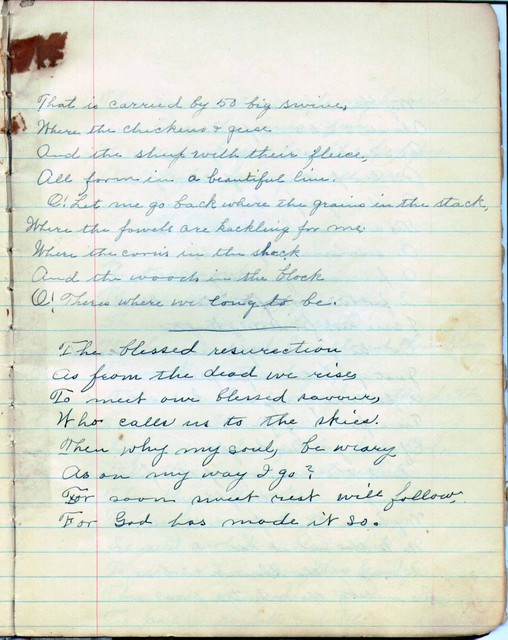 That is carried by 50 big swine,
Where the chickens & geese
And the sheep with their fleece,
All form in a beautiful line.
O! Let me go back where the grains in the stack,
Where the fowels are kackling for me
Where the corn's in the shock
And the wood's in the block
O! There's where we long to be.
The blessed resurection
As from the dead we rise,
To meet our blessed savour,
Who calls us to the skies.
Then why my soul, be weary
As on my way I go?
For soon sweet rest will follow,
For God has made it so.